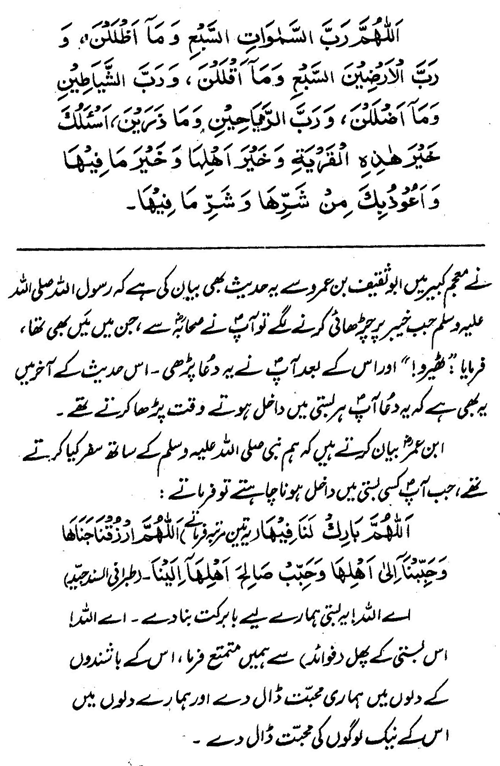 اَللّٰهُمَّ رَبَّ السَّمٰوَاتِ السَّبْعِ وَمَآ اَظْلَلْنَ، وَ
رَبَّ الْاَرْضِيْنَ السَّبْعِ وَمَآ اَقْلَلْنَ، وَرَبَّ الشَّيَاطِيْنِ
وَمَآ اَضْلَلْنَ، وَرَبَّ الرِّيَاحِيْنِ وَمَا ذَرَيْنَ، اَسْئَلُكَ
خَيْرَ هٰذِهِ الْقَرْيَةِ وَخَيْرَ اَهْلِهَا وَخَيْرَ مَا فِيْهَا
وَاَعُوْذُبِكَ مِنْ شَرِّهَا وَشَرِّ مَا فِيْهَا۔
نے معجم کبیر میں ابوثقیف بن عمرو سے یہ حدیث بھی بیان کی ہے کہ رسول اللہ صلی اللہ
علیہ وسلم جب خیبر پر چڑھائی کرنے لگے تو آپؐ نے صحابہؓ سے، جن میں مَیں بھی تھا،
فرمایا: "ٹھیرو!" اور اس کے بعد آپؐ نے یہ دُعا پڑھی۔ اس حدیث کے آخر میں
یہ بھی ہے کہ یہ دُعا آپؐ ہر بستی میں داخل ہوتے وقت پڑھا کرتے تھے۔
ابن عمرؓ بیان کرتے ہیں کہ ہم نبی صلی اللہ علیہ وسلم کے ساتھ سفر کیا کرتے
تھے، جب آپؐ کسی بستی میں داخل ہونا چاہتے تو فرماتے:
اَللّٰهُمَّ بَارِكْ لَنَا فِيْهَا (یہ تین مرتبہ فرماتے) اَللّٰهُمَّ ارْزُقْنَا جَنَاهَا
وَحَبِّبْنَآ اِلىٰ اَهْلِهَا وَحَبِّبْ صَالِحَ اَهْلِهَآ اِلَيْنَا۔ (طبرانی السند جید)
اے اللہ! یہ بستی ہمارے لیے بابرکت بنا دے۔ اے اللہ!
اس بستی کے پھل (فوائد) سے ہمیں متمتع فرما، اس کے باشندوں
کے دلوں میں ہماری محبّت ڈال دے اور ہمارے دلوں میں
اس کے نیک لوگوں کی محبّت ڈال دے۔